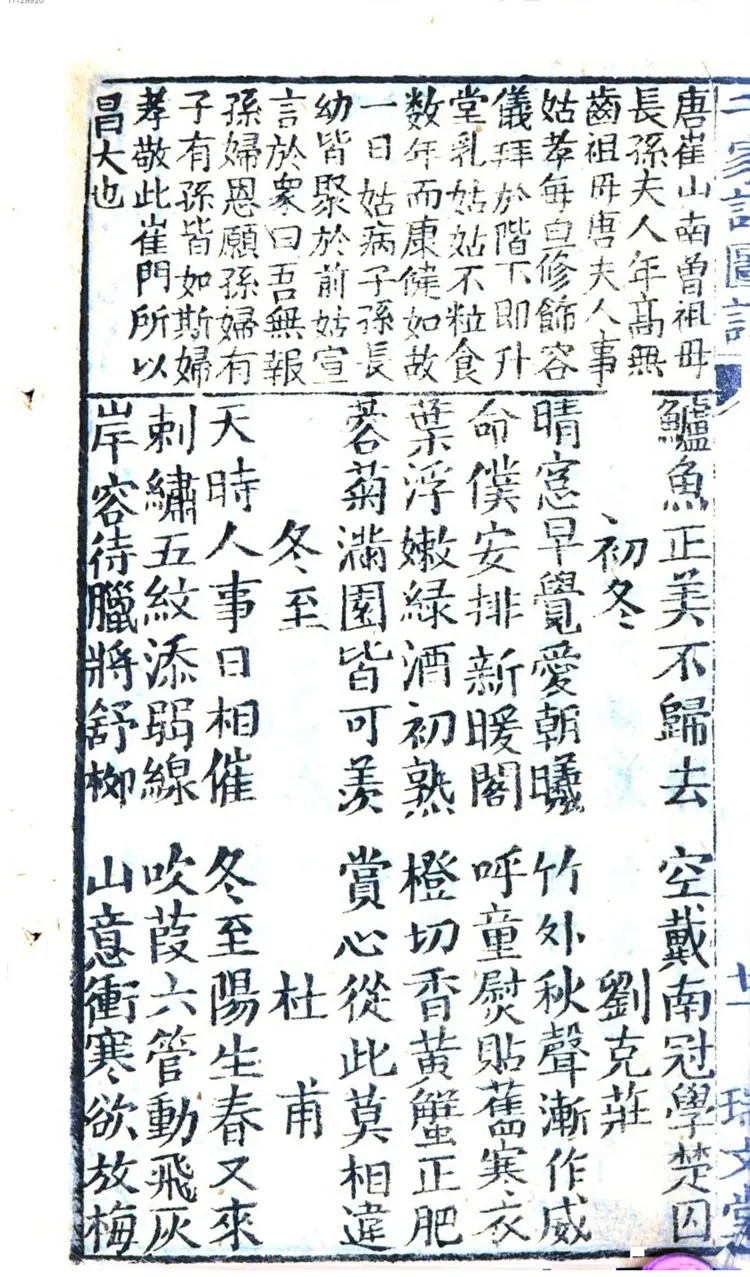 11129920
千家詩圖註
瑞文堂
唐崔山南曾祖母
長孫夫人年高無
齒祖母唐夫人事
姑孝每旦修飾容
儀拜於階下即升
堂乳姑姑不粒食
数年而康健如故
一日姑病子孫長
幼皆聚於前姑宣
言於衆曰吾無報
孫婦恩願孫婦有
子有孫皆如斯婦
孝敬此崔門所以
昌大也
鱸魚正美不歸去 空戴南冠學楚囚
初冬 劉克莊
晴窓早覺愛朝曦 竹外秋聲漸作威
命僕安排新暖閣 呼童熨貼舊寒衣
葉浮嫩緑酒初熟 橙切香黄蟹正肥
蓉菊滿園皆可羡 賞心從此莫相違
冬至 杜甫
天時人事日相催 冬至陽生春又來
刺繡五紋添弱線 吹葭六管動飛灰
岸容待臘將舒柳 山意衝寒欲放梅